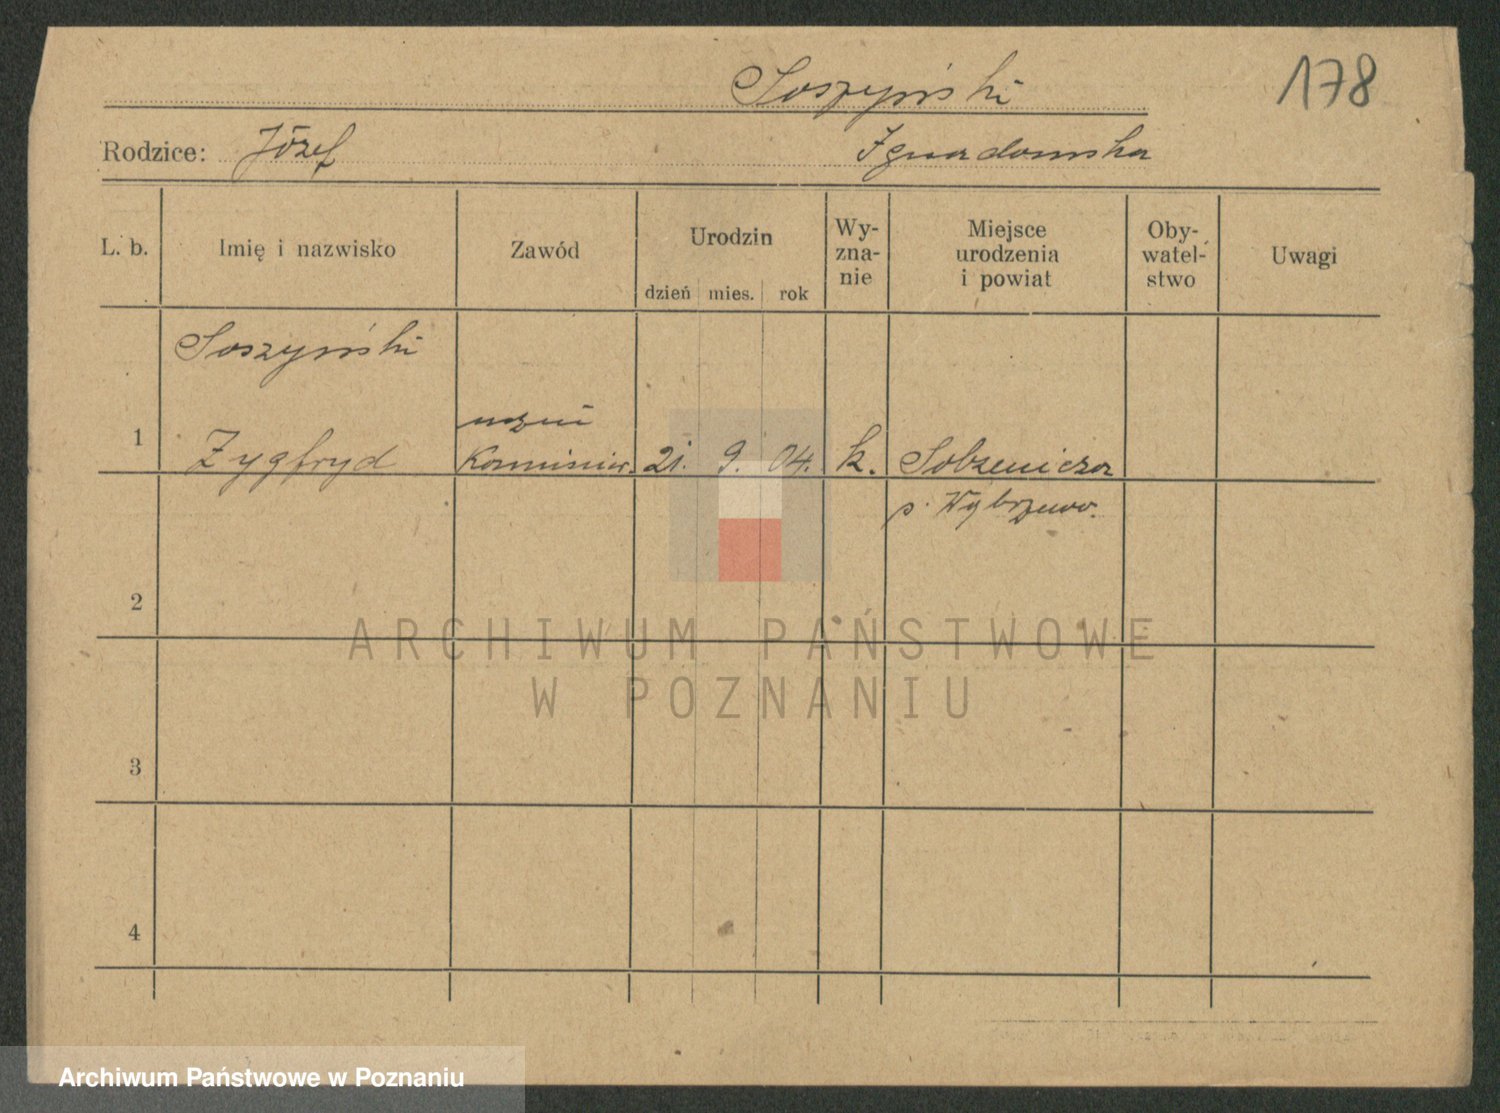 Soszyński
178
Rodzice: Józef
L. b.
Imię i nazwisko
Zawód
Urodzin
dzień mies. rok
Wy-
zna-
nie
Miejsce
urodzenia
i powiat
Oby-
watel-
stwo
Uwagi
Soszyński
uczeń
1 Zygfryd Kominiar. 21. 9. 04. k.
p.
2
ARCHIWUM PAŃSTWOWE
W POZNANIU
3
4
Archiwum Państwowe w Poznaniu